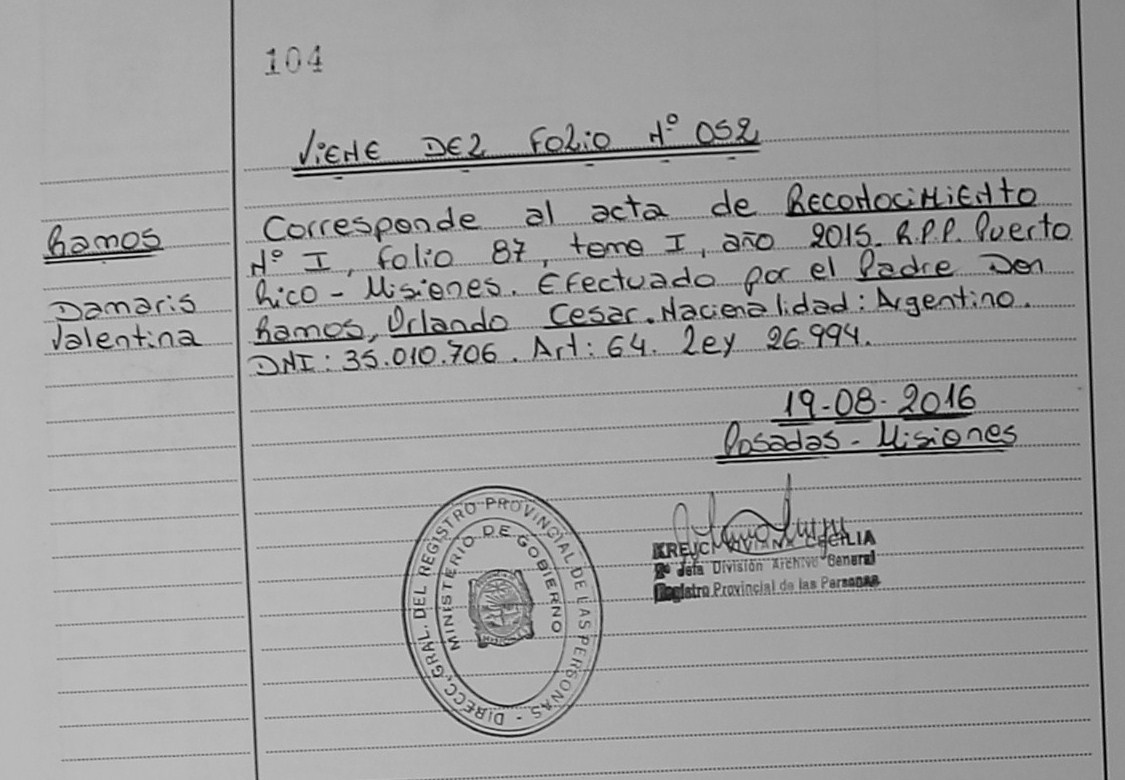 104
Viene del Folio Nº 052
Ramos
Damaris
Valentina
Corresponde al acta de Reconocimiento
Nº I, Folio 87, tomo I, año 2015. R.P.P. Puerto
Rico - Misiones. Efectuado por el Padre Don
Ramos, Orlando Cesar. Nacionalidad: Argentino.
DNI: 35.010.706. Art: 64. Ley 26.994.
19-08-2016
Posadas - Misiones
DIRECC. GRAL. DEL REGISTRO PROVINCIAL DE LAS PERSONAS -
MINISTERIO DE GOBIERNO
CECILIA
Jefa División Archivo General
Registro Provincial de las Personas